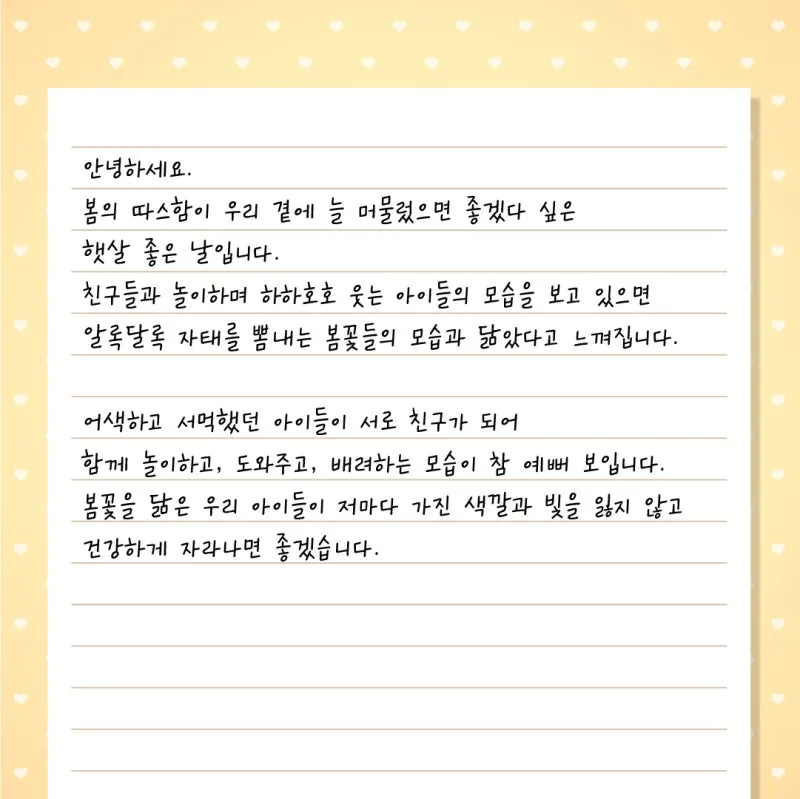 안녕하세요.
봄의 따스함이 우리 곁에 늘 머물렀으면 좋겠다 싶은
햇살 좋은 날입니다.
친구들과 놀이하며 하하호호 웃는 아이들의 모습을 보고 있으면
알록달록 자태를 뽐내는 봄꽃들의 모습과 닮았다고 느껴집니다.
어색하고 서먹했던 아이들이 서로 친구가 되어
함께 놀이하고, 도와주고, 배려하는 모습이 참 예뻐 보입니다.
봄꽃을 닮은 우리 아이들이 저마다 가진 색깔과 빛을 잃지 않고
건강하게 자라나면 좋겠습니다.